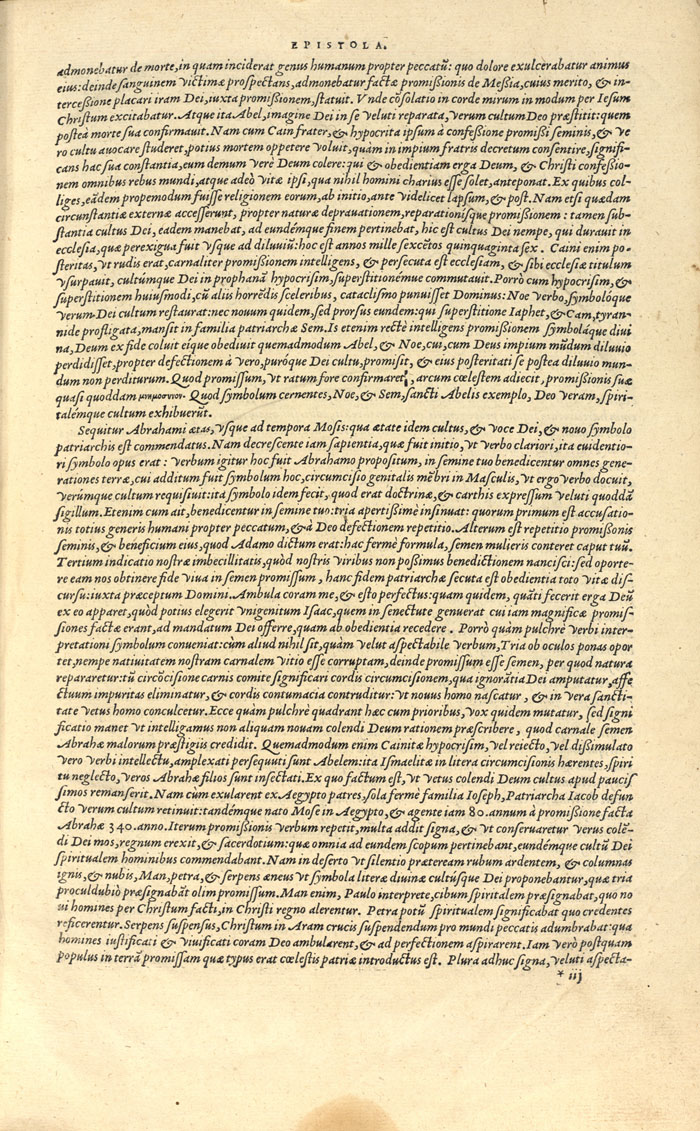 EPISTOLA.
admonebatur de morte, in quam inciderat genus humanum propter peccatū: quo dolore exulcerabatur animus
eius: deinde sanguinem victimæ prospectans, admonebatur factæ promißionis de Meßia, cuius merito, & in-
terceßione placari iram Dei, iuxta promißionem, statuit. Vnde cōsolatio in corde mirum in modum per Iesum
Christum excitabatur. Atque ita Abel, imagine Dei in se veluti reparata, verum cultum Deo præstitit: quem
posteà morte sua confirmauit. Nam cum Cain frater, & hypocrita ipsum à confeßione promißi seminis, & ve
ro cultu auocare studeret, potius mortem oppetere voluit, quàm in impium fratris decretum consentire, signifi-
cans hac sua constantia, eum demum verè Deum colere: qui & obedientiam erga Deum, & Christi confeßio-
nem omnibus rebus mundi, atque adeò vitæ ipsi, qua nihil homini charius esse solet, anteponat. Ex quibus col-
liges, eādem propemodum fuisse religionem eorum, ab initio, ante videlicet lapsum, & pòst. Nam etsi quædam
circunstantiæ externæ accesserunt, propter naturæ deprauationem, reparationisque promißionem: tamen sub-
stantia cultus Dei, eadem manebat, ad eundémque finem pertinebat, hic est cultus Dei nempe, qui durauit in
ecclesia, quæ perexigua fuit vsque ad diluuiū: hoc est annos mille sexcētos quinquaginta sex. Caini enim po-
steritas, vt rudis erat, carnaliter promißionem intelligens, & persecuta est ecclesiam, & sibi ecclesiæ titulum
vsurpauit, cultúmque Dei in prophanā hypocrisim, superstitionémue commutauit. Porrò cum hypocrisim, &
superstitionem huiusmodi, cū aliis horrēdis sceleribus, cataclismo punuisset Dominus: Noe verbo, symbolóque
verum Dei cultum restaurat: nec nouum quidem, sed prorsus eundem: qui superstitione Iaphet, & Cam, tyran-
nide profligata, mansit in familia patriarchæ Sem. Is etenim rectè intelligens promißionem symbolâque diui
na, Deum ex fide coluit eique obediuit quemadmodum Abel, & Noe, cui, cum Deus impium mūdum diluuio
perdidisset, propter defectionem à vero, puróque Dei cultu, promisit, & eius posteritati se postea diluuio mun-
dum non perditurum. Quod promissum, vt ratum fore confirmaret, arcum cœlestem adiecit, promißionis suæ
quasi quoddam μνημοσυνον. Quod symbolum cernentes, Noe, & Sem, sancti Abelis exemplo, Deo veram, spiri-
talémque cultum exhibuerūt.
Sequitur Abrahami ætas, vsque ad tempora Mosis: qua ætate idem cultus, & voce Dei, & nouo symbolo
patriarchis est commendatus. Nam decrescente iam sapientia, quæ fuit initio, vt verbo clariori, ita euidentio-
ri symbolo opus erat: verbum igitur hoc fuit Abrahamo propositum, in semine tuo benedicentur omnes gene-
rationes terræ, cui additum fuit symbolum hoc, circumcisio genitalis mēbri in Masculis, vt ergo verbo docuit,
verúmque cultum requisiuit: ita symbolo idem fecit, quod erat doctrinæ, & carthis expressum veluti quoddā
sigillum. Etenim cum ait, benedicentur in semine tuo: tria apertißimè insinuat: quorum primum est accusatio-
nis totius generis humani propter peccatum, & à Deo defectionem repetitio. Alterum est repetitio promißionis
seminis, & beneficium eius, quod Adamo dictum erat: hac fermè formula, semen mulieris conteret caput tuū.
Tertium indicatio nostræ imbecillitatis, quòd nostris viribus non poßimus benedictionem nancisci: sed oporte-
re eam nos obtinere fide viua in semen promissum, hanc fidem patriarchæ secuta est obedientia toto vitæ dis-
cursu: iuxta præceptum Domini. Ambula coram me, & esto perfectus: quam quidem, quāti fecerit erga Deū
ex eo apparet, quòd potius elegerit vnigenitum Isaac, quem in senectute genuerat cui iam magnificæ promis-
siones factæ erant, ad mandatum Dei offerre, quam ab obedientia recedere. Porrò quàm pulchrè verbi inter-
pretationi symbolum conueniat: cùm aliud nihil sit, quàm velut aspectabile verbum, Tria ob oculos ponas opor
tet, nempe natiuitatem nostram carnalem vitio esse corruptam, deinde promissum esse semen, per quod natura
repararetur: tū circōcisione carnis comite significari cordis circumcisionem, qua ignorātia Dei amputatur, affe
ctuum impuritas eliminatur, & cordis contumacia contruditur: vt nouus homo nascatur, & in vera sancti-
tate vetus homo conculcetur. Ecce quàm pulchrè quadrant hæc cum prioribus, vox quidem mutatur, sed signi
ficatio manet vt intelligamus non aliquam nouam colendi Deum rationem præscribere, quod carnale semen
Abrahæ malorum præstigiis credidit. Quemadmodum enim Cainitæ hypocrisim, vel reiecto, vel dißimulato
vero verbi intellectu, amplexati persequuti sunt Abelem: ita Ismaelitæ in litera circumcisionis hærentes, spiri
tu neglecto, veros Abrahæ filios sunt insectati. Ex quo factum est, vt vetus colendi Deum cultus apud paucis
simos remanserit. Nam cùm exularent ex Aegypto patres, sola fermè familia Ioseph, Patriarcha Iacob defun
cto verum cultum retinuit: tandémque nato Mose in Aegypto, & agente iam 80. annum à promißione facta
Abrahæ 340. anno. Iterum promißionis verbum repetit, multa addit signa, & vt conseruaretur verus colē-
di Dei mos, regnum erexit, & sacerdotium: quæ omnia ad eundem scopum pertinebant, eundémque cultū Dei
spiritualem hominibus commendabant. Nam in deserto vt silentio præteream rubum ardentem, & columnas
ignis, & nubis, Man, petra, & serpens æneus vt symbola literæ diuinæ cultúsque Dei proponebantur, quæ tria
proculdubiò præsignabāt olim promissum. Man enim, Paulo interprete, cibum spiritalem præsignabat, quo no
ui homines per Christum facti, in Christi regno alerentur. Petra potū spiritualem significabat quo credentes
reficerentur. Serpens suspensus, Christum in Aram crucis suspendendum pro mundi peccatis adumbrabat: qua
homines iustificati & viuificati coram Deo ambularent, & ad perfectionem aspirarent. Iam verò postquam
populus in terrā promissam quæ typus erat cœlestis patriæ introductus est. Plura adhuc signa, veluti aspecta-
* iij